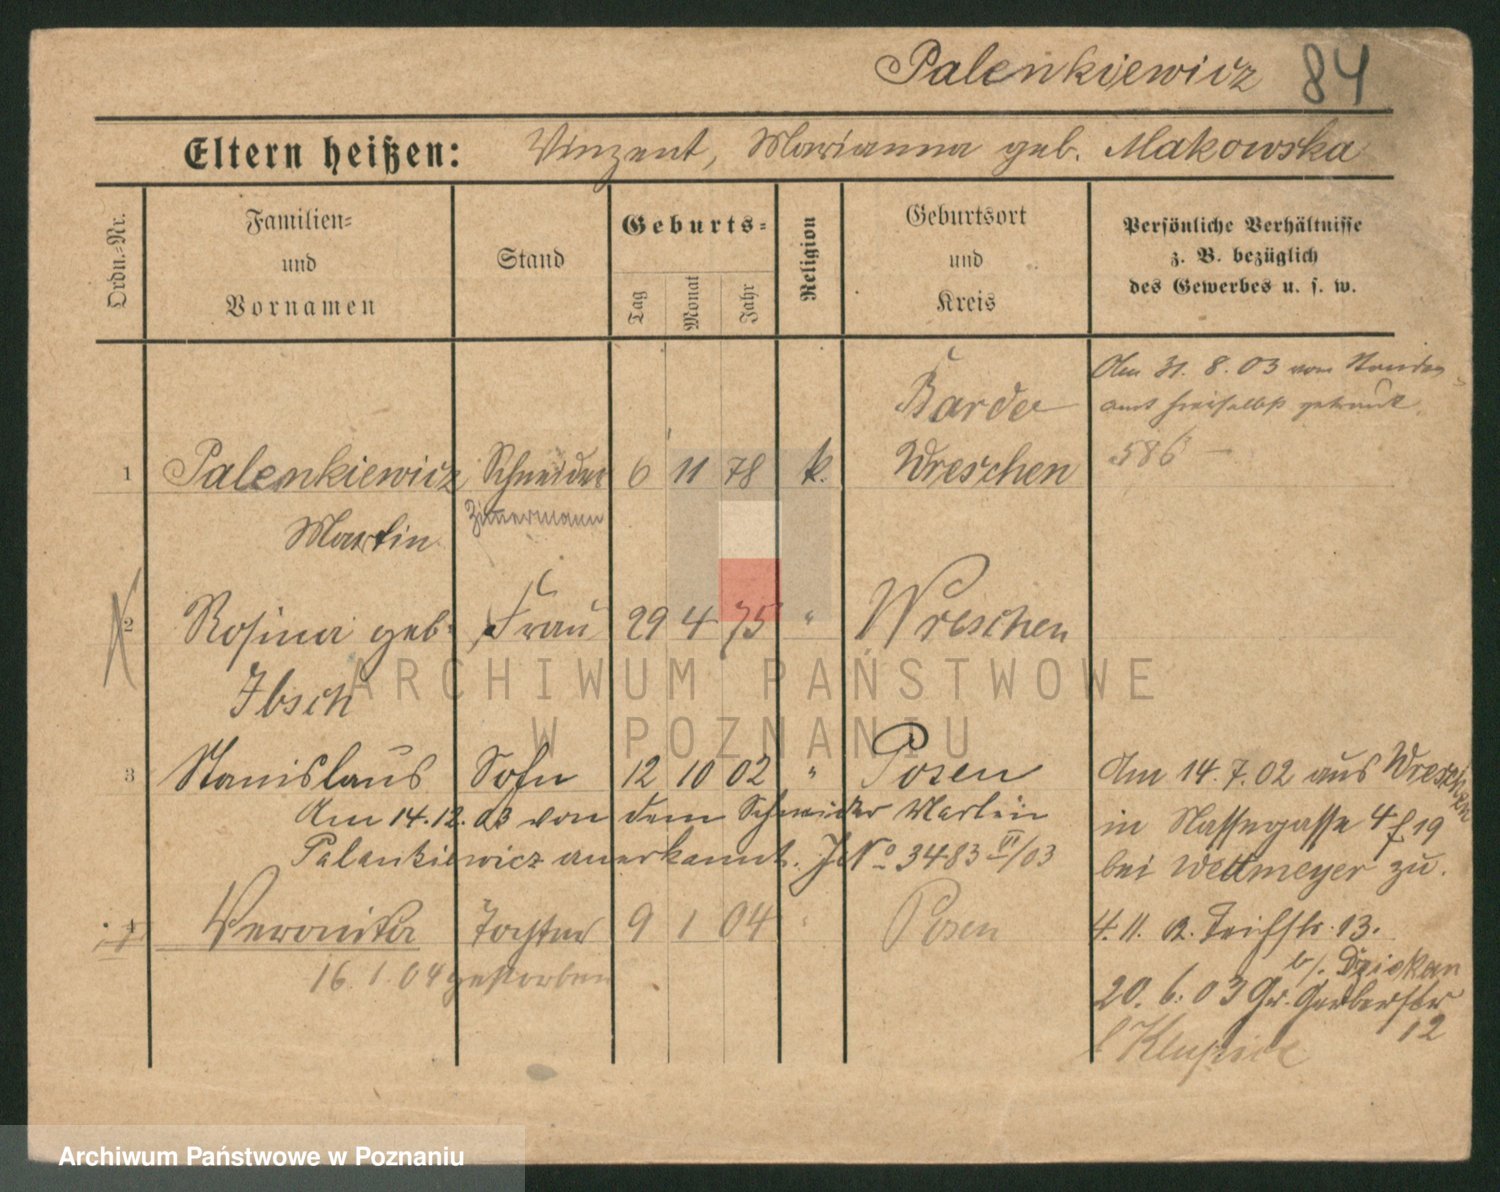 Palenkiewicz 84
Eltern heißen: Vinzent, Marianna geb. Makowska
Ordn.-Nr.
Familien-
und
Vornamen
Stand
Geburts-
Tag
Monat
Jahr
Religion
Geburtsort
und
Kreis
Persönliche Verhältnisse
z. B. bezüglich
des Gewerbes u. s. w.
Am 31. 8. 03 vom Standes-
amt hierselbst getraut.
Bardo
1 Palenkiewicz Schneider 6 11 78 k. Wreschen 586
Zimmermann
Martin
2 Rosina geb. Frau 29 4 75 " Wreschen
Ibsch
3 Stanislaus Sohn 12 10 02 " Posen
Am 14. 7. 02 aus Wreschen
Am 14. 12. 03 von dem Schneider Martin
in Nassegasse 4 f 19
Palenkiewicz anerkannt. J. No 3483 VI/03
bei Wettmeyer zu.
4 Veronika Tochter 9 1 04 " Posen
4. 11. 02. Teichstr. 13.
16. 1. 04 gestorben
b/. Dziekan
20. 6. 03 Gr. Gerberstr
12
ARCHIWUM PAŃSTWOWE
W POZNANIU
Archiwum Państwowe w Poznaniu